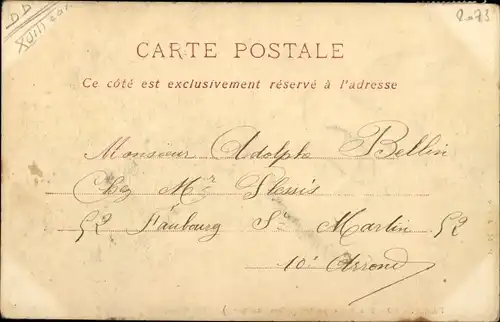 DD
XVIII
CARTE POSTALE
Ce côté est exclusivement réservé à l'adresse
Monsieur Adolphe Bellin
Chez Mr Plessis
52 Faubourg St Martin 52
10e Arrond